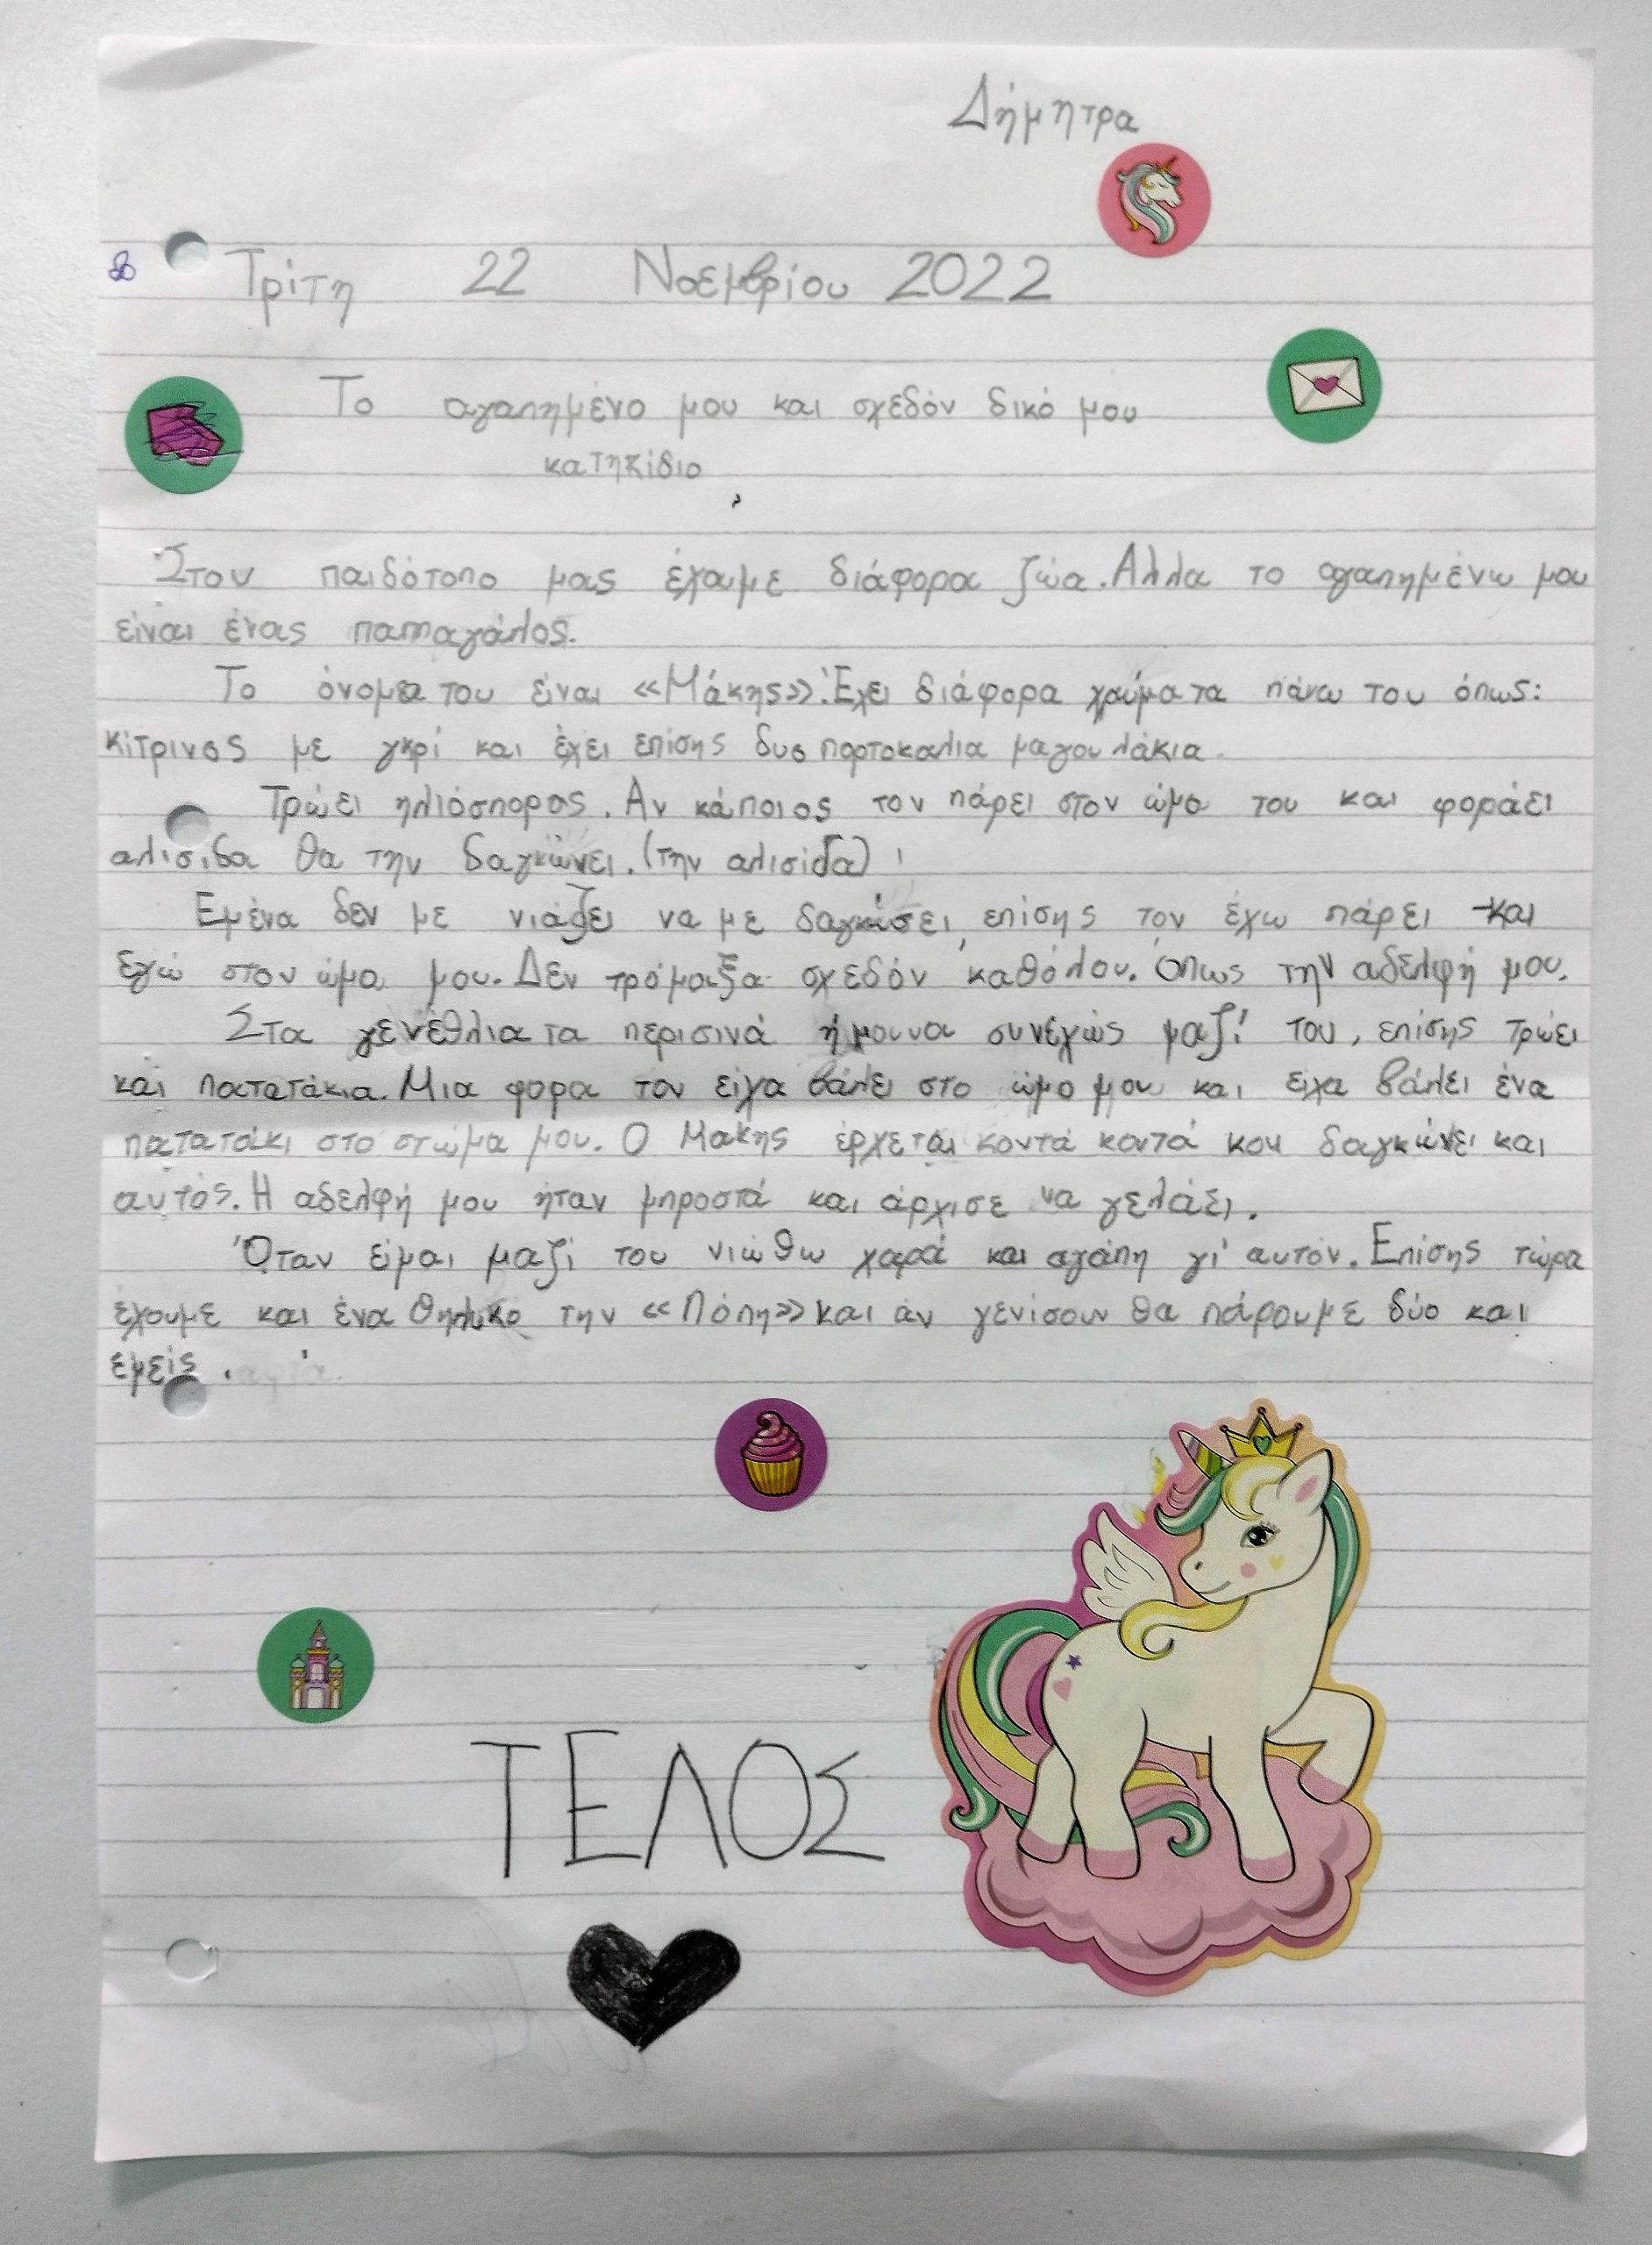 Δήμητρα
Τρίτη 22 Νοεμβρίου 2022
Το αγαπημένο μου και σχεδόν δικό μου
κατηκίδιο
Στον παιδότοπο μας έχουμε διάφορα ζώα. Αλλα το αγαπημένω μου
είναι ένας παπαγάλος.
Το όνομα του είναι «Μάκης». Έχει διάφορα χρώματα πάνω του όπως:
κίτρινος με γκρί και έχει επίσης δυο πορτοκαλια μαγουλάκια.
Τρώει ηλιόσπορος. Αν κάποιος τον πάρει στον ώμο του και φοράει
αλισιδα θα την δαγκώνει. (την αλισίδα) !
Εμένα δεν με νιάζει να με δαγκώσει, επίσης τον έχω πάρει και
εγώ στον ώμο μου. Δεν τρόμαξα σχεδόν καθόλου. Όπως την αδελφή μου.
Στα γενέθλια τα περισινά ήμουνα συνεχώς μαζί του, επίσης τρώει
και πατατάκια. Μια φορα τον είχα βάλει στο ώμο μου και είχα βάλει ένα
πατατάκι στο στώμα μου. Ο Μακης έρχεται κοντά κοντά και δαγκώνει και
αυτός. Η αδελφή μου ήταν μπροστά και άρχισε να γελάει.
Όταν είμαι μαζί του νιώθω χαρά και αγάπη γι' αυτόν. Επίσης τώρα
έχουμε και ένα θηλυκό την «Πόπη» και άν γενίσουν θα πάρουμε δύο και
εμείς.
ΤΕΛΟΣ